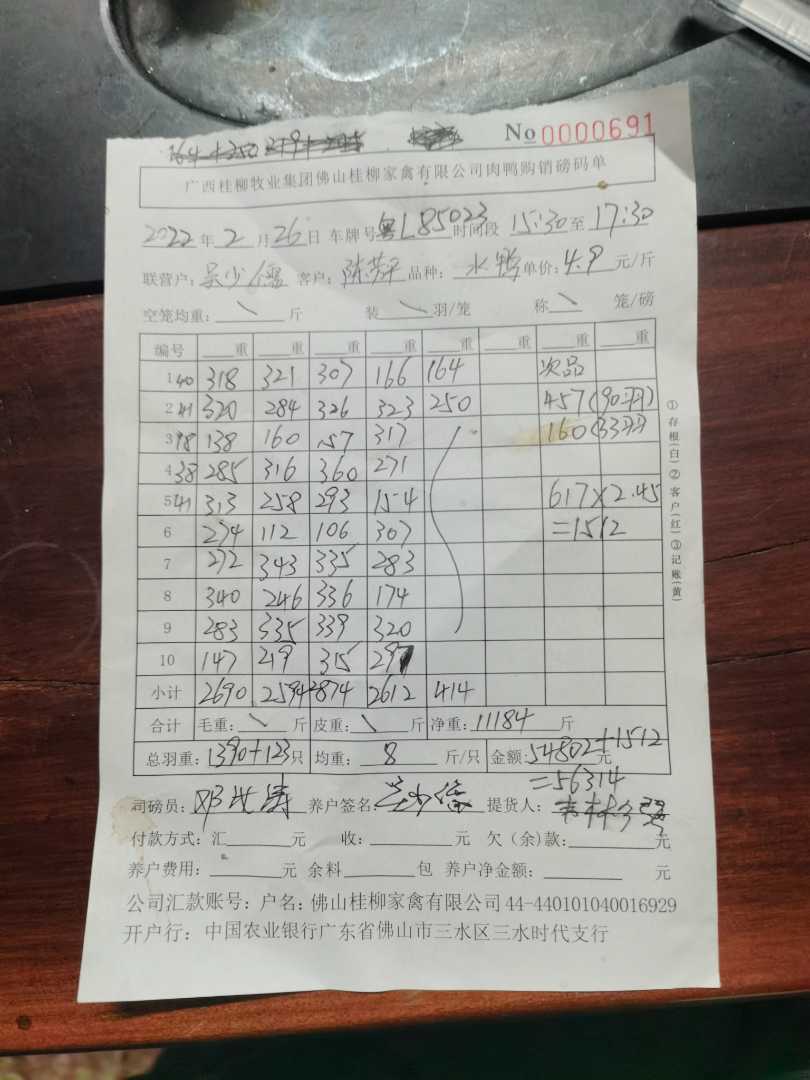 No 0000691
广西桂柳牧业集团佛山桂柳家禽有限公司肉鸭购销磅码单
2022年2月26日 车牌号粤L85023时间段15:30至17:30
联营户:吴少儒 客户:陈芳平 品种:水鸭 单价:4.9元/斤
空笼均重:\斤 装\羽/笼 称\笼/磅
编号 重 重 重 重 重 重 重 重
1 40 318 321 307 166 164 次品
2 41 320 284 326 323 250 457(90羽)
3 98 138 160 157 317 160(33羽)
4 38 285 316 360 271
5 41 313 258 293 154 617×2.45
6 274 112 106 307 =1512
7 272 343 335 283
8 340 246 336 174
9 283 335 339 320
10 147 219 315 297
小计 2690 2594 2874 2612 414
合计 毛重:\斤 皮重:\斤 净重:11184斤
总羽重:1390+123只 均重:8斤/只 金额:54802+1512元
=56314
司磅员: 养户签名: 提货人:
付款方式:汇 元 收: 元 欠(余)款: 元
养户费用: 元 余料 包 养户净金额: 元
公司汇款账号:户名:佛山桂柳家禽有限公司 44-440101040016929
开户行:中国农业银行广东省佛山市三水区三水时代支行
①存根(白)②客户(红)③记账(黄)